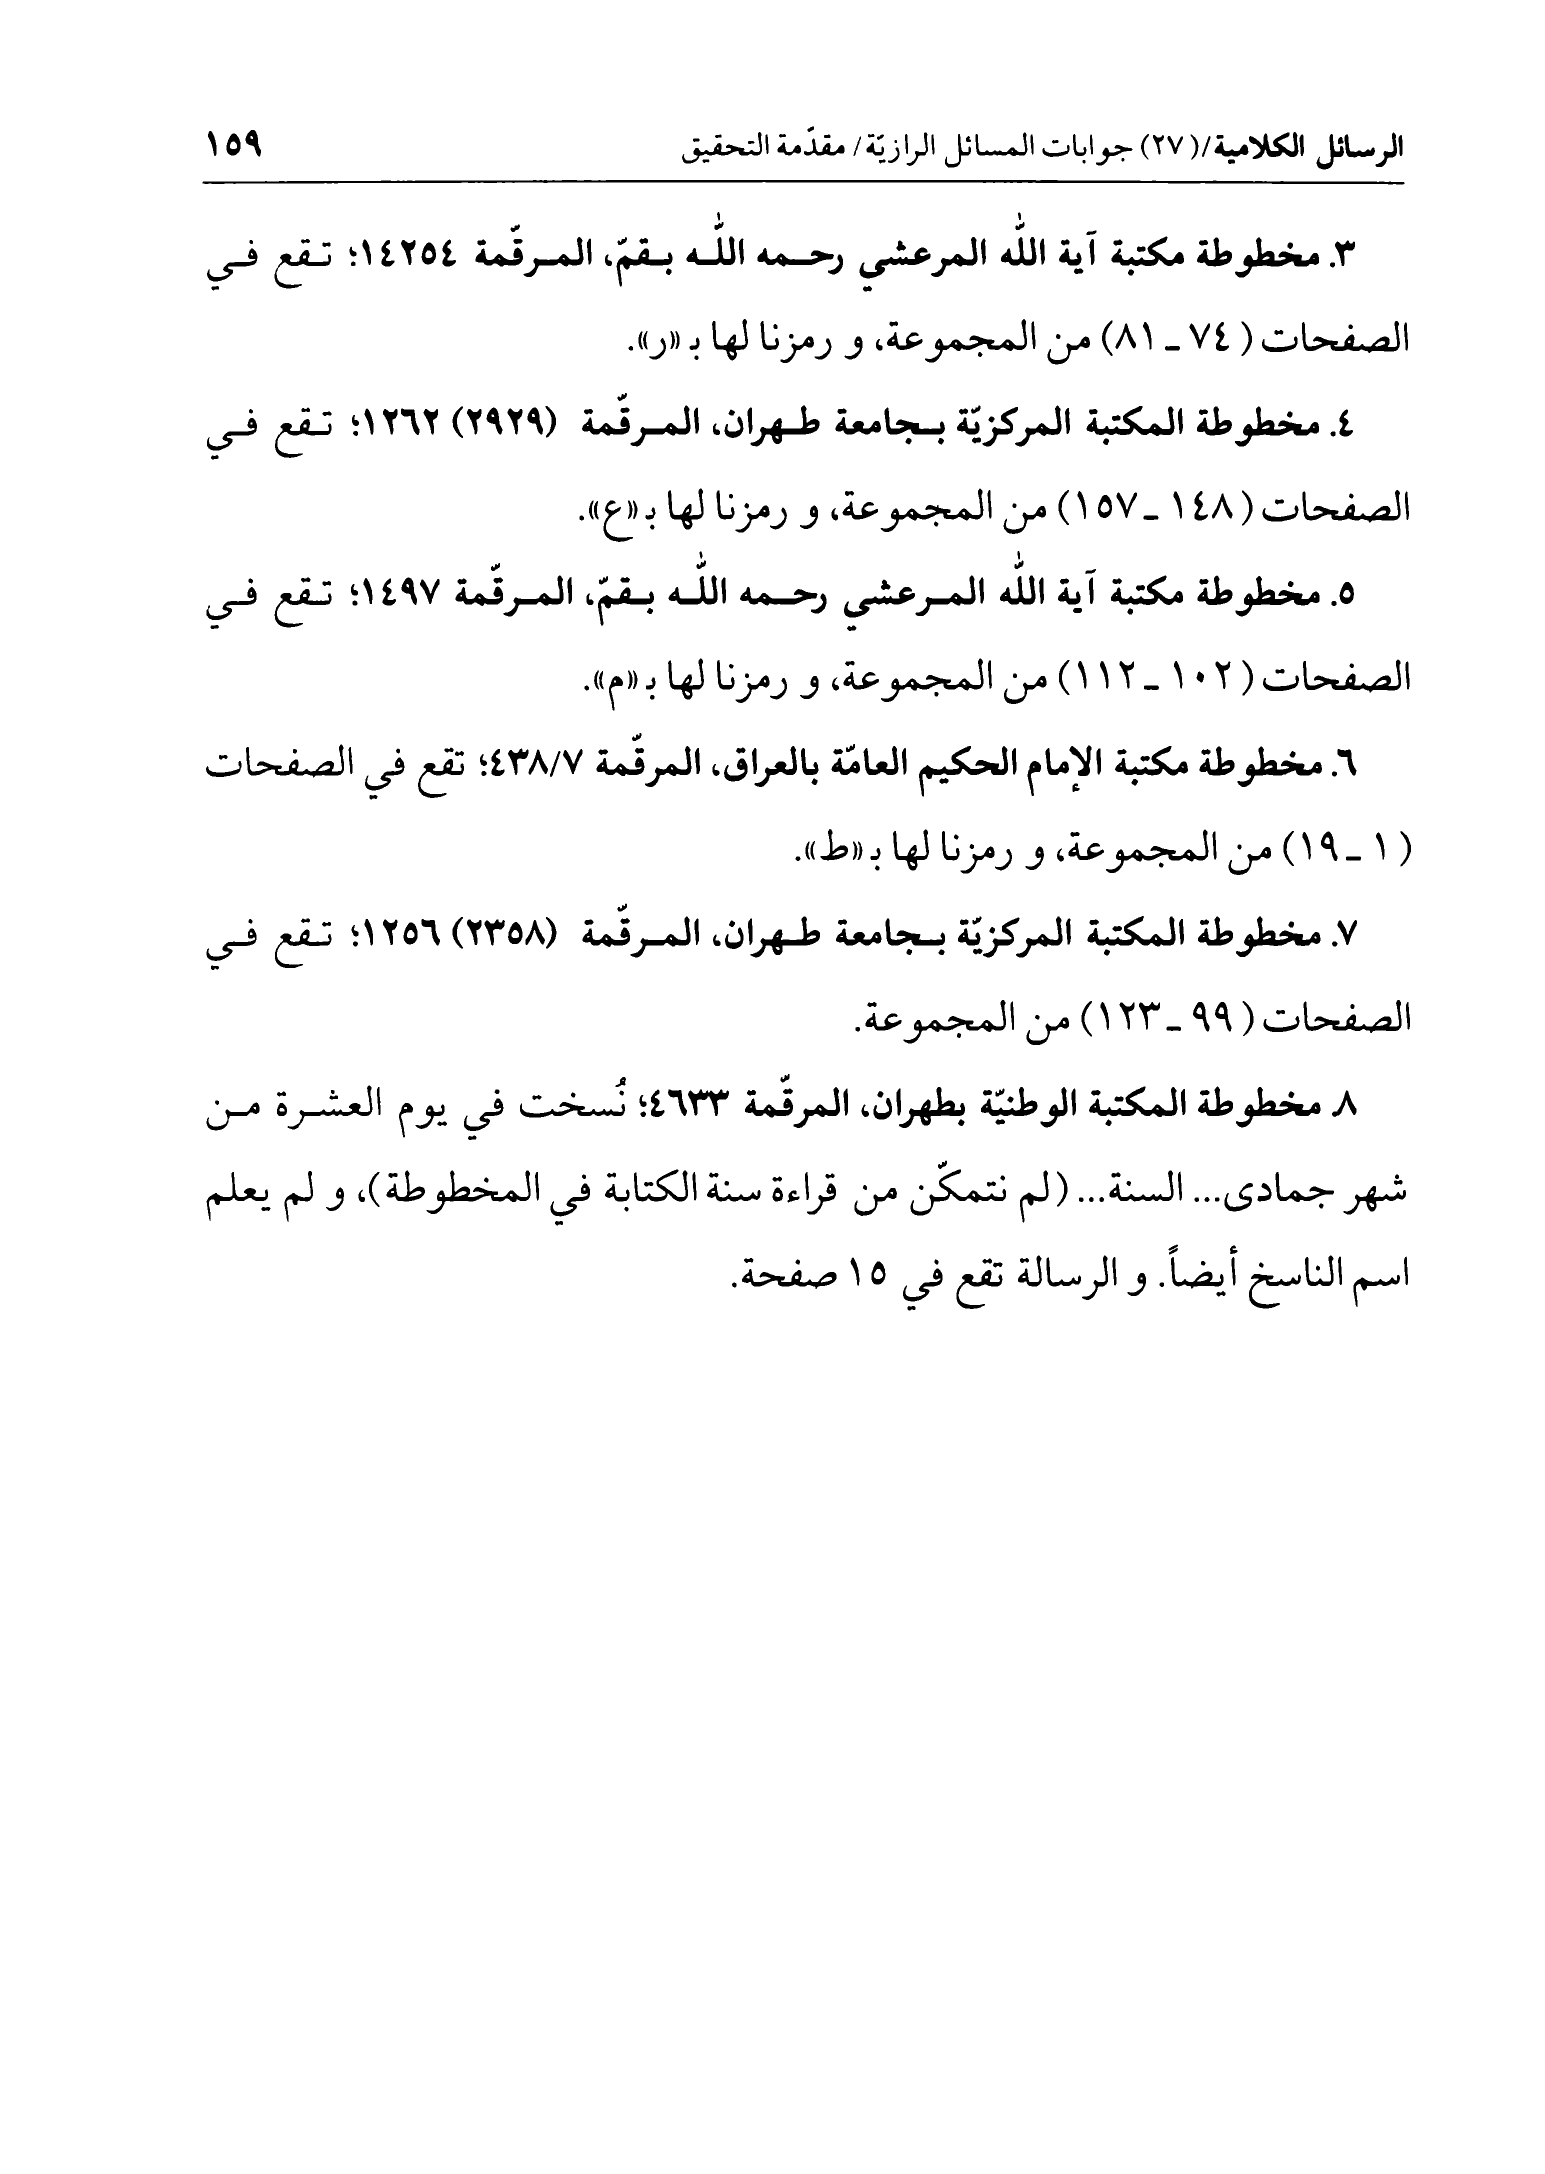 الرسائل الكلامية/(٢٧) جوابات المسائل الرازيّة/ مقدّمة التحقيق ١٥٩
٣. مخطوطة مكتبة آية اللّٰه المرعشي رحمه اللّٰه بقمّ، المرقّمة ١٤٢٥٤؛ تقع في
الصفحات (٧٤ ـ ٨١) من المجموعة، و رمزنا لها بـ«ر».
٤. مخطوطة المكتبة المركزيّة بجامعة طهران، المرقّمة (٢٩٢٩) ١٢٦٢؛ تقع في
الصفحات (١٤٨ ـ ١٥٧) من المجموعة، و رمزنا لها بـ«ع».
٥. مخطوطة مكتبة آية اللّٰه المرعشي رحمه اللّٰه بقمّ، المرقّمة ١٤٩٧؛ تقع في
الصفحات (١٠٢ ـ ١١٢) من المجموعة، و رمزنا لها بـ«م».
٦. مخطوطة مكتبة الإمام الحكيم العامّة بالعراق، المرقّمة ٤٣٨/٧؛ تقع في الصفحات
(١ ـ ١٩) من المجموعة، و رمزنا لها بـ«ط».
٧. مخطوطة المكتبة المركزيّة بجامعة طهران، المرقّمة (٢٣٥٨) ١٢٥٦؛ تقع في
الصفحات (٩٩ ـ ١٢٣) من المجموعة.
٨. مخطوطة المكتبة الوطنيّة بطهران، المرقّمة ٤٦٣٣؛ نُسخت في يوم العشرة من
شهر جمادى... السنة... (لم نتمكّن من قراءة سنة الكتابة في المخطوطة)، و لم يعلم
اسم الناسخ أيضاً. و الرسالة تقع في ١٥ صفحة.